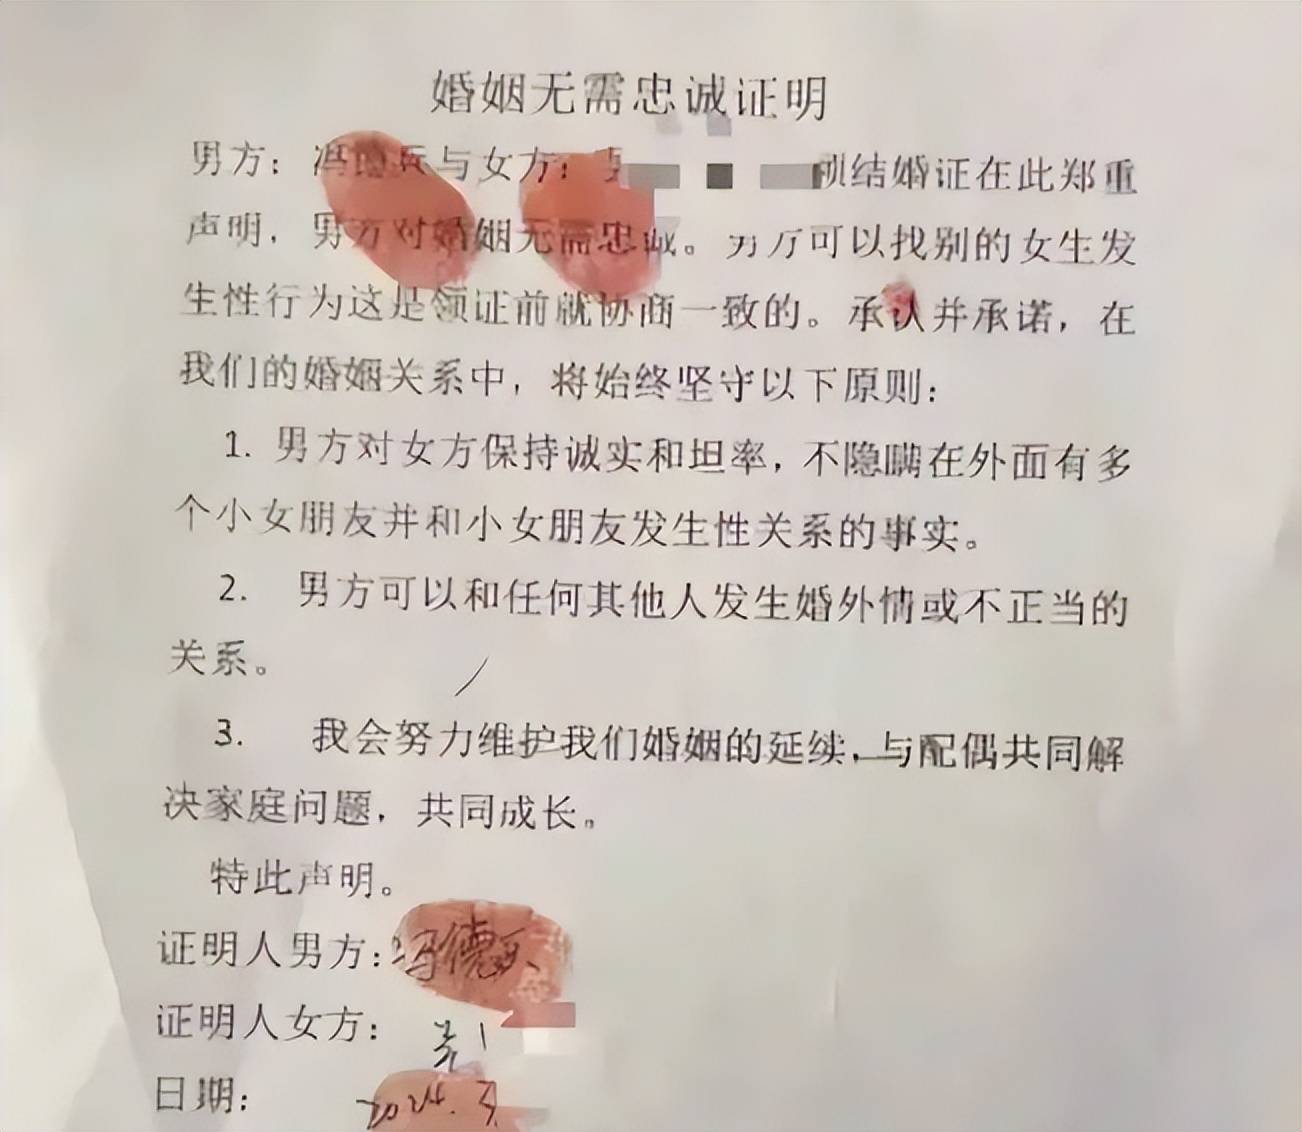 婚姻无需忠诚证明
男方：冯德兵与女方： 领结婚证在此郑重
声明，男方对婚姻无需忠诚。男方可以找别的女生发
生性行为这是领证前就协商一致的。承认并承诺，在
我们的婚姻关系中，将始终坚守以下原则：
1. 男方对女方保持诚实和坦率，不隐瞒在外面有多
个小女朋友并和小女朋友发生性关系的事实。
2. 男方可以和任何其他人发生婚外情或不正当的
关系。
3. 我会努力维护我们婚姻的延续，与配偶共同解
决家庭问题，共同成长。
特此声明。
证明人男方：冯德兵
证明人女方：
日期： 2024.3